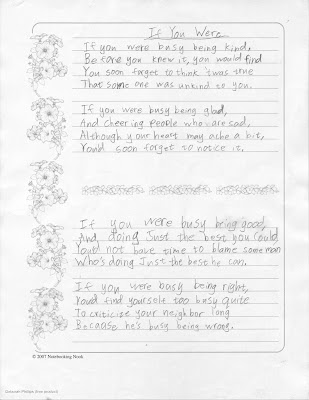 If You Were
If you were busy being kind,
Before you knew it, you would find
You soon forget to think 'twas true
That some one was unkind to you.
If you were busy being glad,
And cheering people who are sad,
Although your heart may ache a bit,
You'd soon forget to notice it.
If you were busy being good,
And doing Just the best you could
You'd not have time to blame some man
Who's doing Just the best he can.
If you were busy being right,
You'd find yourself too busy quite
To criticize your neighbor long
Because he's busy being wrong.
© 2007 Notebooking Nook